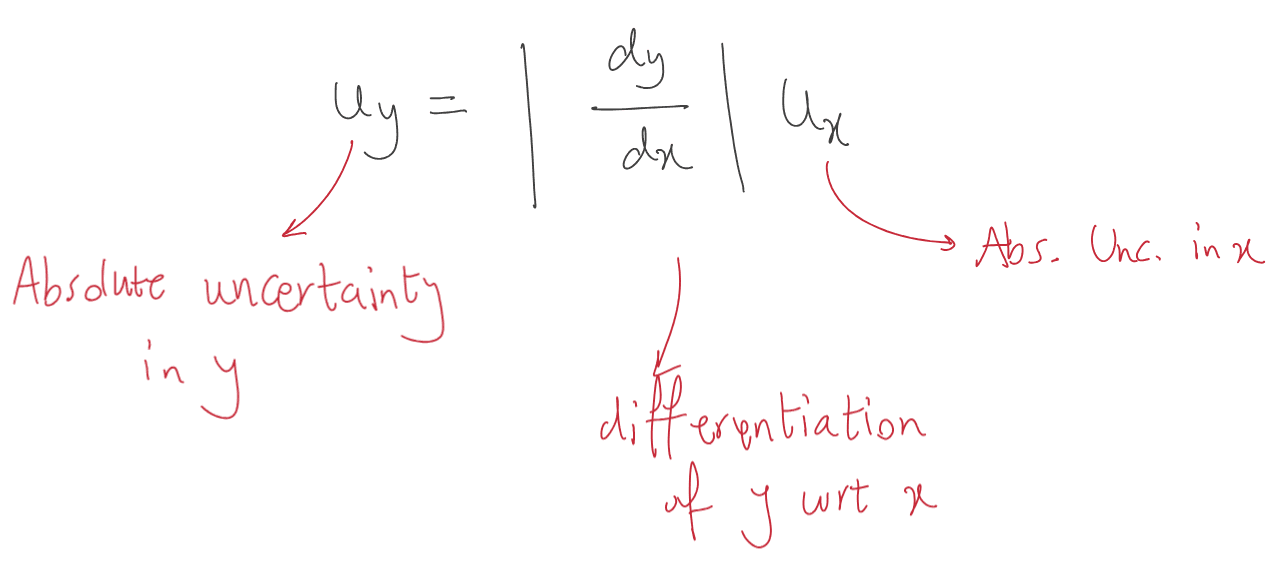 u_y = | dy/dx | u_x
Abs. Unc. in x
Absolute uncertainty
in y
differentiation
of y wrt x